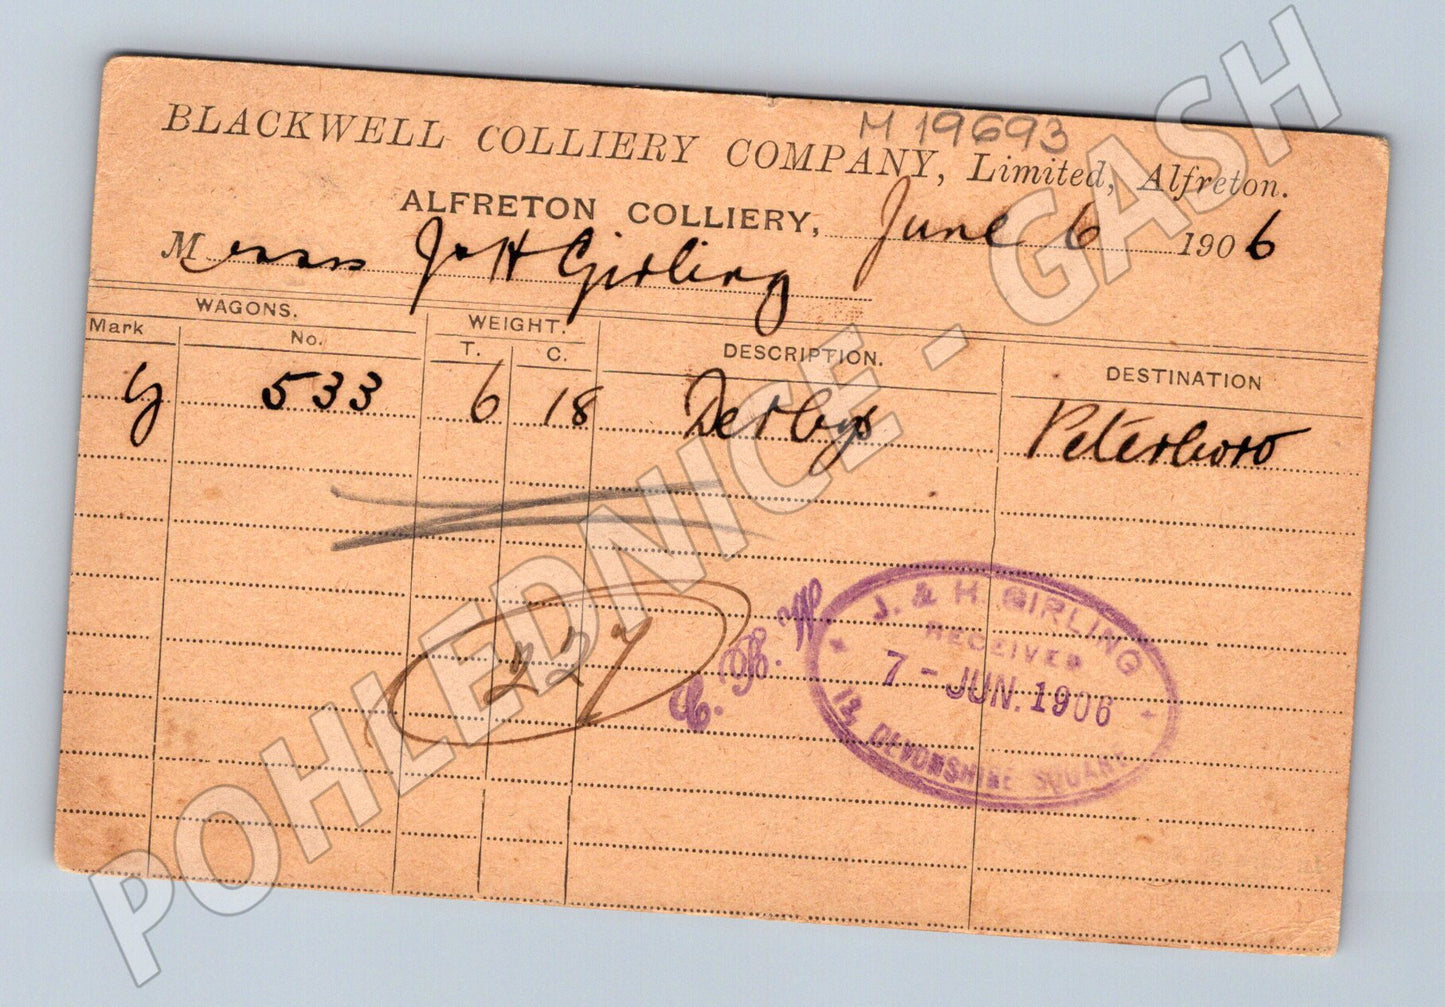 M 19693
BLACKWELL COLLIERY COMPANY, Limited, Alfreton.
ALFRETON COLLIERY, June 6 1906
Messrs J & H Girling
WAGONS. WEIGHT. DESCRIPTION. DESTINATION
Mark No. T. C.
G 533 6 18 Derbys Peterboro
227
J. & H. GIRLING
RECEIVED
7 - JUN. 1906
13, DEVONSHIRE SQUARE
POHLEDNICE - GASH